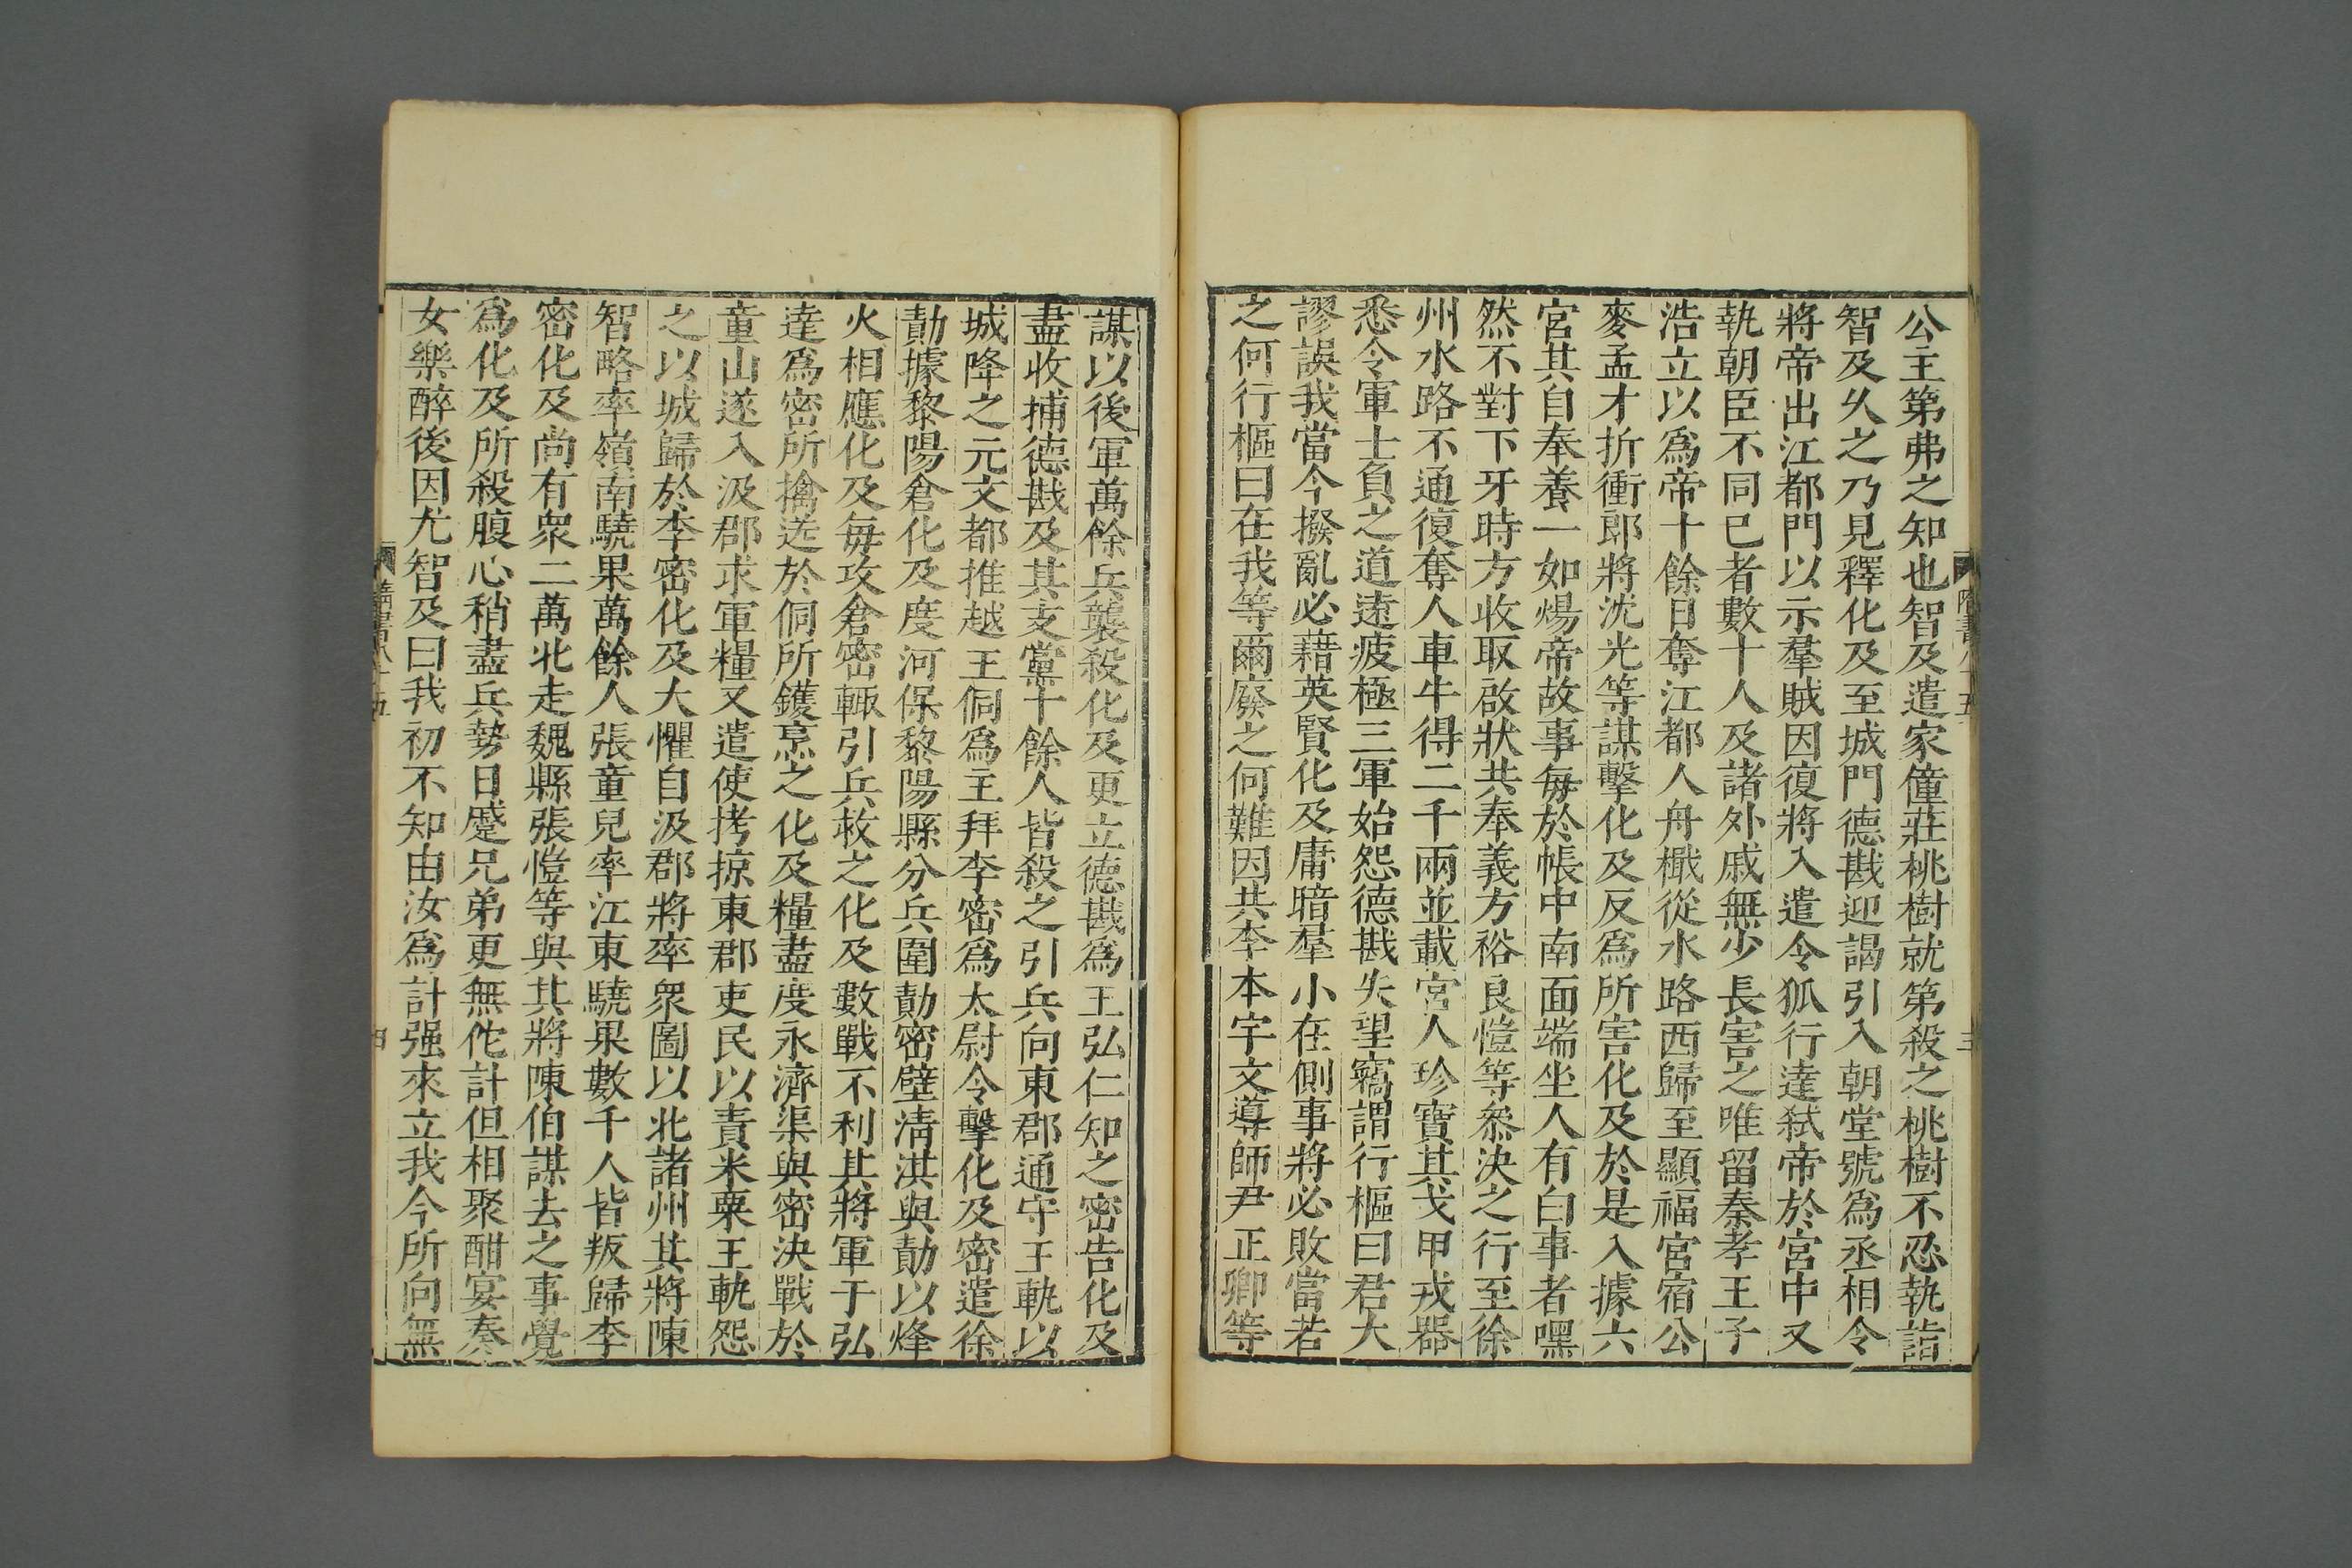 公主第弗之知也智及遣家僮莊桃樹就第殺之桃樹不忍執詣
智及久之乃見釋化及至城門德戡迎謁引入朝堂號爲丞相令
將帝出江都門以示羣賊因復將入遣令狐行達弑帝於宮中又
執朝臣不同已者數十人及諸外戚無少長害之唯留秦孝王子
浩立以爲帝十餘日奪江都人舟檝從水路西歸至顯福宮宿公
麥孟才折衝郎將沈光等謀擊化及反爲所害化及於是入據六
宮其自奉養一如煬帝故事每於帳中南面端坐人有白事者嘿
然不對下牙時方收取啟狀共奉義方裕良愷等叅決之行至徐
州水路不通復奪人車牛得二千兩並載宮人珍寶其戈甲戎器
悉令軍士負之道遠疲極三軍始怨德戡失望竊謂行樞曰君大
謬誤我當今撥亂必藉英賢化及庸暗羣小在側事將必敗當若
之何行樞曰在我等爾廢之何難因共李本宇文導師尹正卿等
隋書八十五
三
謀以後軍萬餘兵襲殺化及更立德戡爲主弘仁知之密告化及
盡收捕德戡及其支黨十餘人皆殺之引兵向東郡通守王軌以
城降之元文都推越王侗爲主拜李密爲太尉令擊化及密遣徐
勣據黎陽倉化及度河保黎陽縣分兵圍勣密壁淸淇與勣以烽
火相應化及每攻倉密輒引兵救之化及數戰不利其將軍于弘
達爲密所擒送於侗所鑊烹之化及糧盡度永濟渠與密決戰於
童山遂入汲郡求軍糧又遣使拷掠東郡吏民以責米粟王軌怨
之以城歸於李密化及大懼自汲郡將率衆圖以北諸州其將陳
智略率嶺南驍果萬餘人張童兒率江東驍果數千人皆叛歸李
密化及尚有衆二萬北走魏縣張愷等與其將陳伯謀去之事覺
爲化及所殺腹心稍盡兵勢日蹙兄弟更無佗計但相聚酣宴奏
女樂醉後因尤智及曰我初不知由汝爲計强來立我今所向無
隋書八十五
四